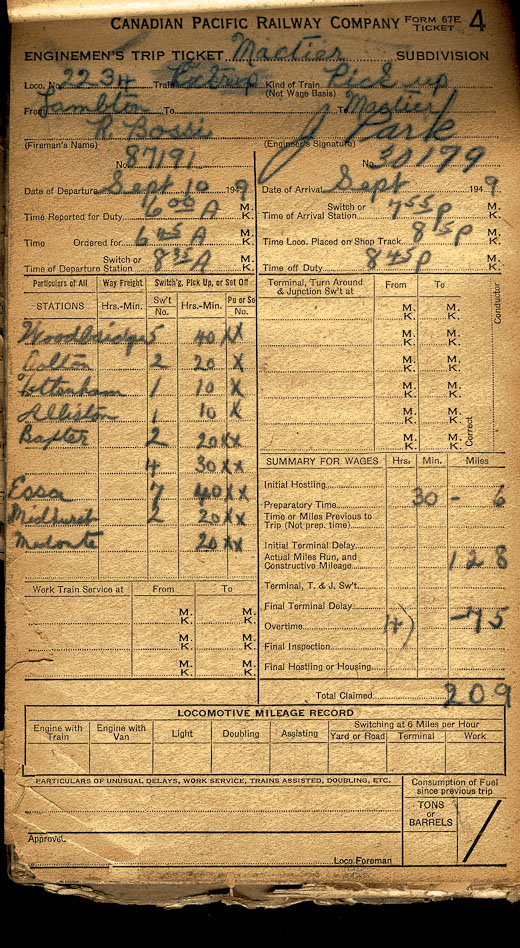 CANADIAN PACIFIC RAILWAY COMPANY FORM 67E TICKET 4
ENGINEMEN'S TRIP TICKET Mactier SUBDIVISION
Loco. No. 2234 Train Extra Kind of Train Pick up
(Not Wage Basis)
From Lambton To To Mactier
J Park
(Fireman's Name) (Engineer's Signature)
No. 87191 No. 30179
Date of Departure Sept 10 1949 Date of Arrival Sept 1949
Time Reported for Duty 6 00 A M. K. Switch or Time of Arrival Station 7 55 P M. K.
Time Ordered for 6 45 A M. K. Time Loco. Placed on Shop Track 8 15 P M. K.
Switch or Time of Departure Station 8 35 A M. K. Time off Duty 8 45 P M. K.
Particulars of All Way Freight Switch'g, Pick Up, or Set Off Terminal, Turn Around & Junction Sw't at From To
STATIONS Hrs.-Min. Sw't No. Hrs.-Min. Pu or So No. M. K.
Woodbridge 5 40 XX M. K.
Bolton 2 20 X M. K.
Tottenham 1 10 X M. K.
Alliston 1 10 X M. K.
Baxter 2 20 XX M. K.
Conductor
Correct
4 30 XX
Essa 7 40 XX
Midhurst 2 20 XX
Medonte 20 XX
SUMMARY FOR WAGES Hrs. Min. Miles
Initial Hostling
Preparatory Time 30 - 6
Time or Miles Previous to Trip (Not prep. time)
Initial Terminal Delay
Actual Miles Run, and Constructive Mileage 128
Terminal, T. & J. Sw't.
Final Terminal Delay
Overtime -75
Final Inspection
Final Hostling or Housing
Total Claimed 209
Work Train Service at From To
M. K. M. K.
M. K. M. K.
M. K. M. K.
LOCOMOTIVE MILEAGE RECORD
Engine with Train Engine with Van Light Doubling Assisting Switching at 6 Miles per Hour
Yard or Road Terminal Work
PARTICULARS OF UNUSUAL DELAYS, WORK SERVICE, TRAINS ASSISTED, DOUBLING, ETC. Consumption of Fuel since previous trip
TONS or BARRELS
Approved
Loco Foreman